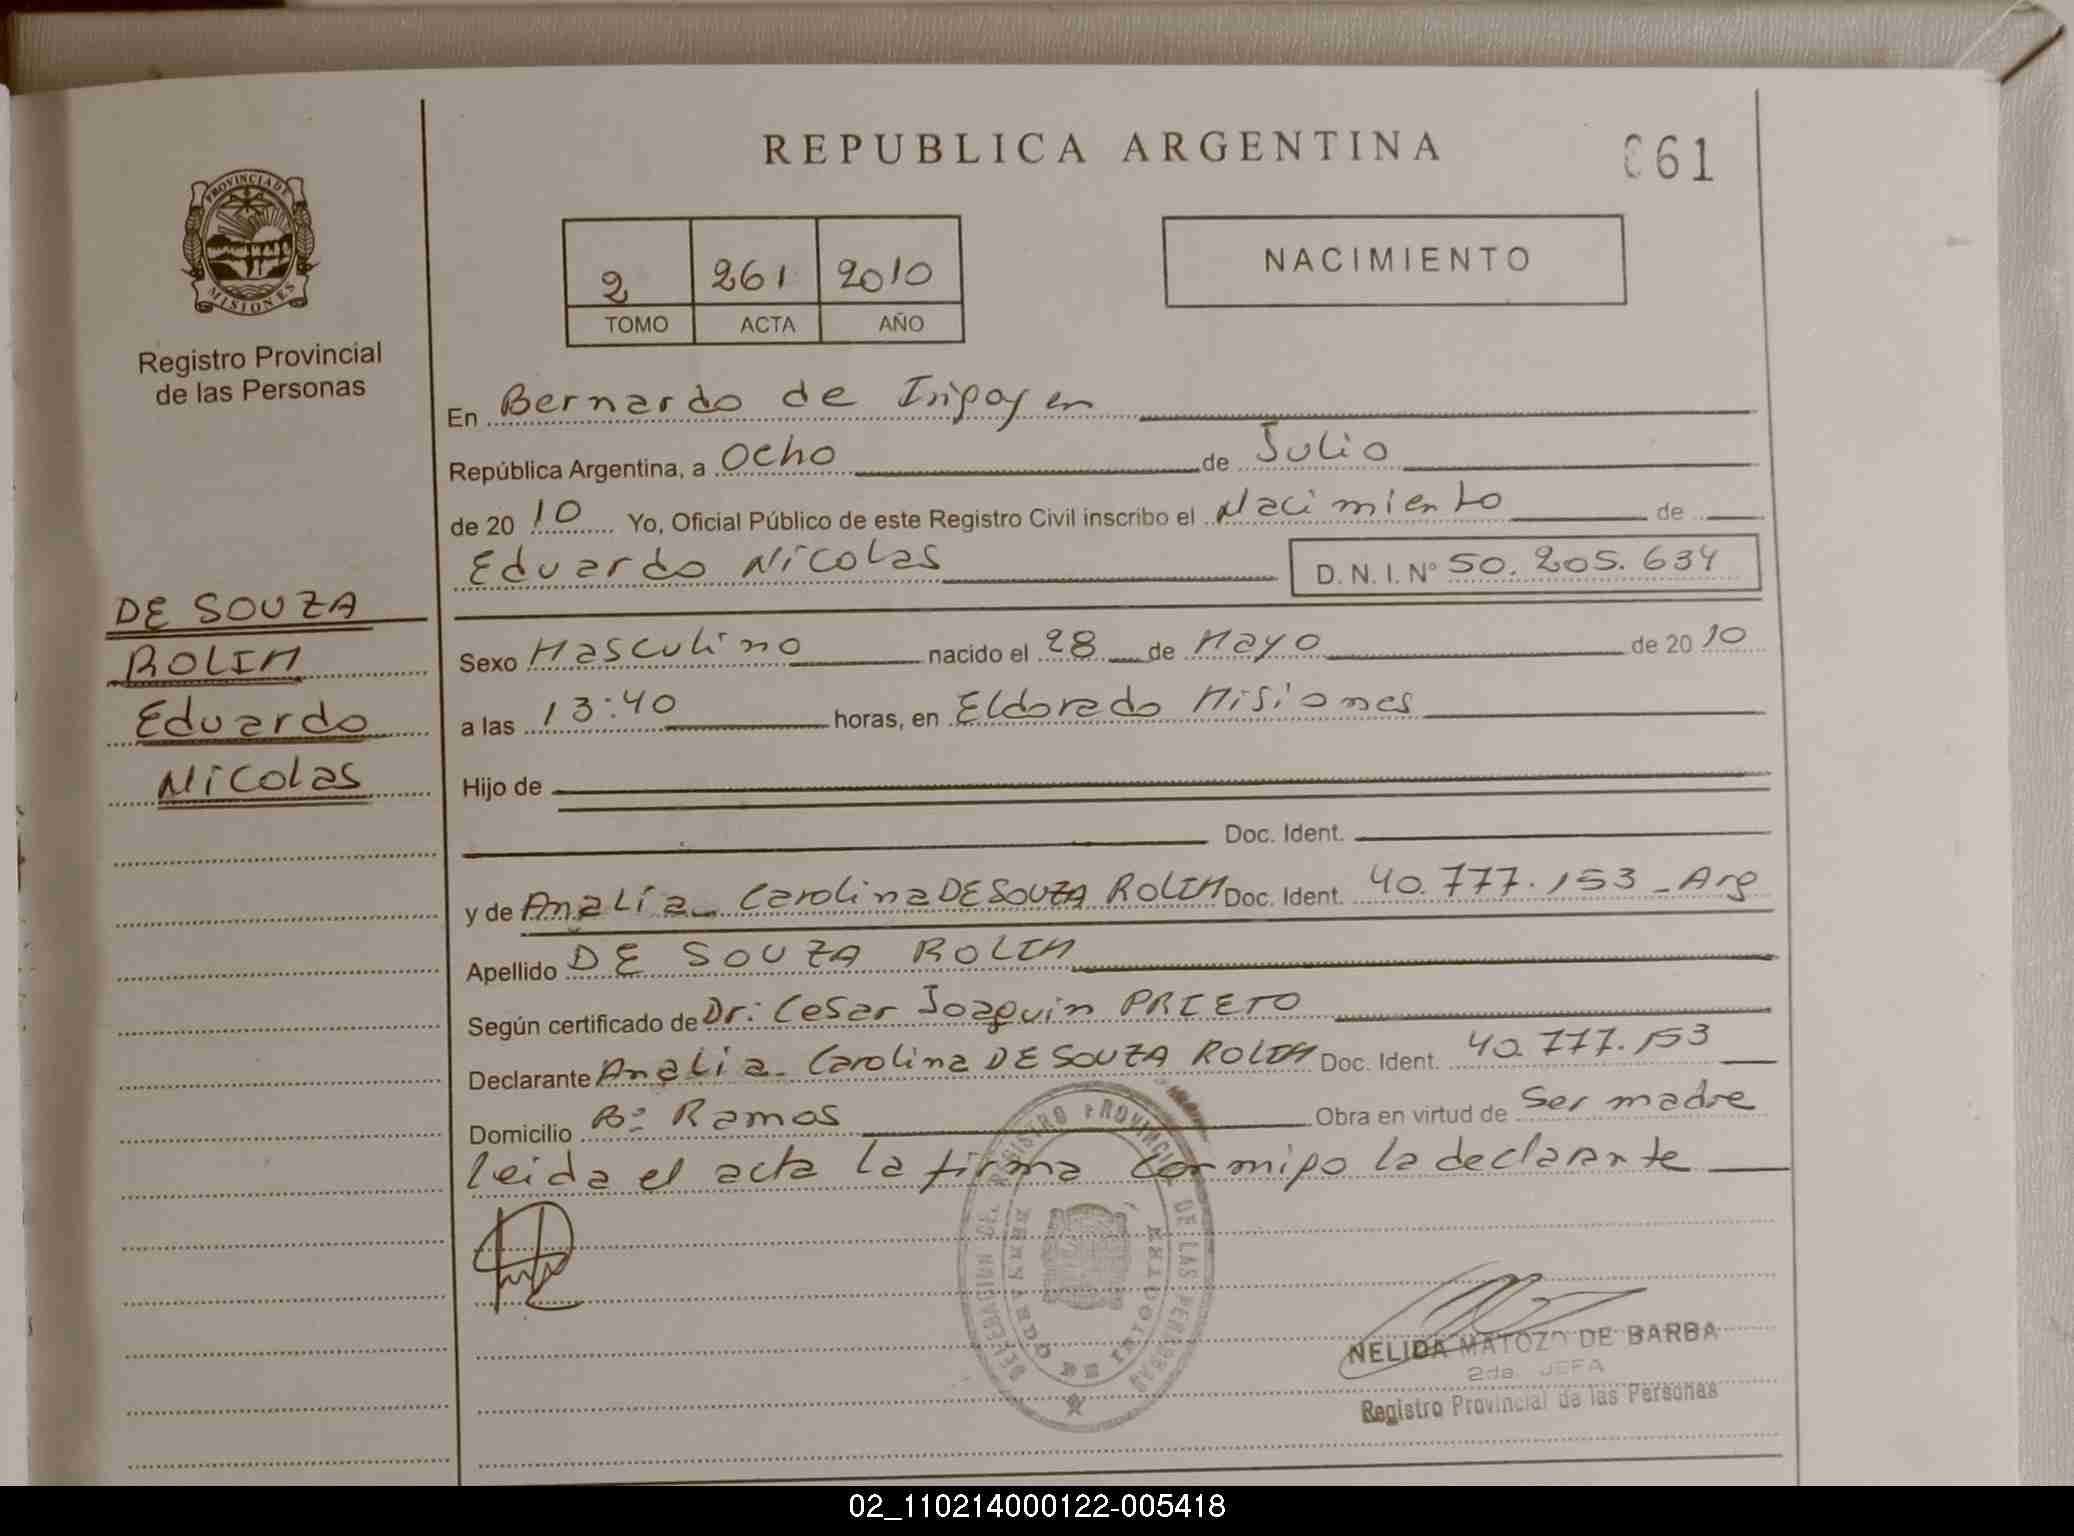 REPUBLICA ARGENTINA
061
PROVINCIA DE
MISIONES
Registro Provincial
de las Personas
2 261 2010
TOMO ACTA AÑO
NACIMIENTO
En Bernardo de Iripoyen
República Argentina, a Ocho de Julio
de 20 10 Yo, Oficial Público de este Registro Civil inscribo el Nacimiento de
Eduardo Nicolas D. N. I. Nº 50.205.634
DE SOUZA
ROLIM
Eduardo
Nicolas
Sexo Masculino nacido el 28 de Mayo de 20 10
a las 13:40 horas, en Eldorado Misiones
Hijo de
Doc. Ident.
y de Analía Carolina DE SOUZA ROLIM Doc. Ident. 40.777.153 - Arg
Apellido DE SOUZA ROLIM
Según certificado de Dr: Cesar Joaquin PRIETO
Declarante Analia Carolina DE SOUZA ROLIM Doc. Ident. 40.777.153
Domicilio Bº Ramos Obra en virtud de Ser madre
leida el acta la firma conmigo la declarante
DELEGACION DEL REGISTRO PROVINCIAL DE LAS PERSONAS
NELIDA MATOZO DE BARBA
2da. JEFA
Registro Provincial de las Personas
02_110214000122-005418